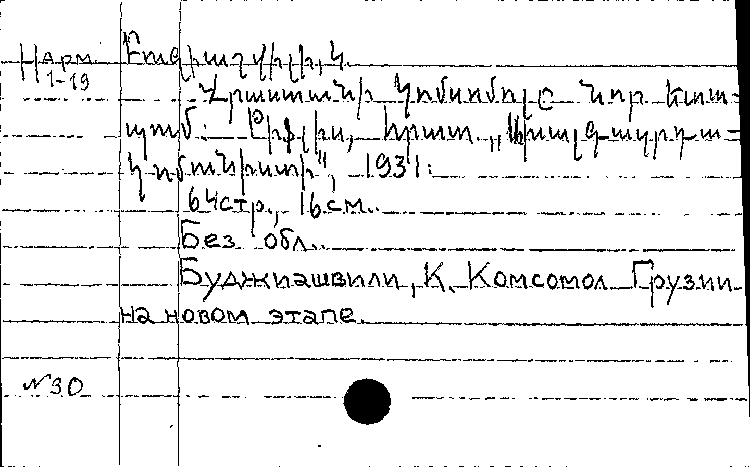 Нарм. 1-19
Վրաստանի կոմսոմոլը նոր էտա-
պում: Թիֆլիս, հրատ.
կոմունիստի", 1931:
64 стр., 16 см..
Без обл..
Буджиашвили, К. Комсомол Грузии
на новом этапе.
№30